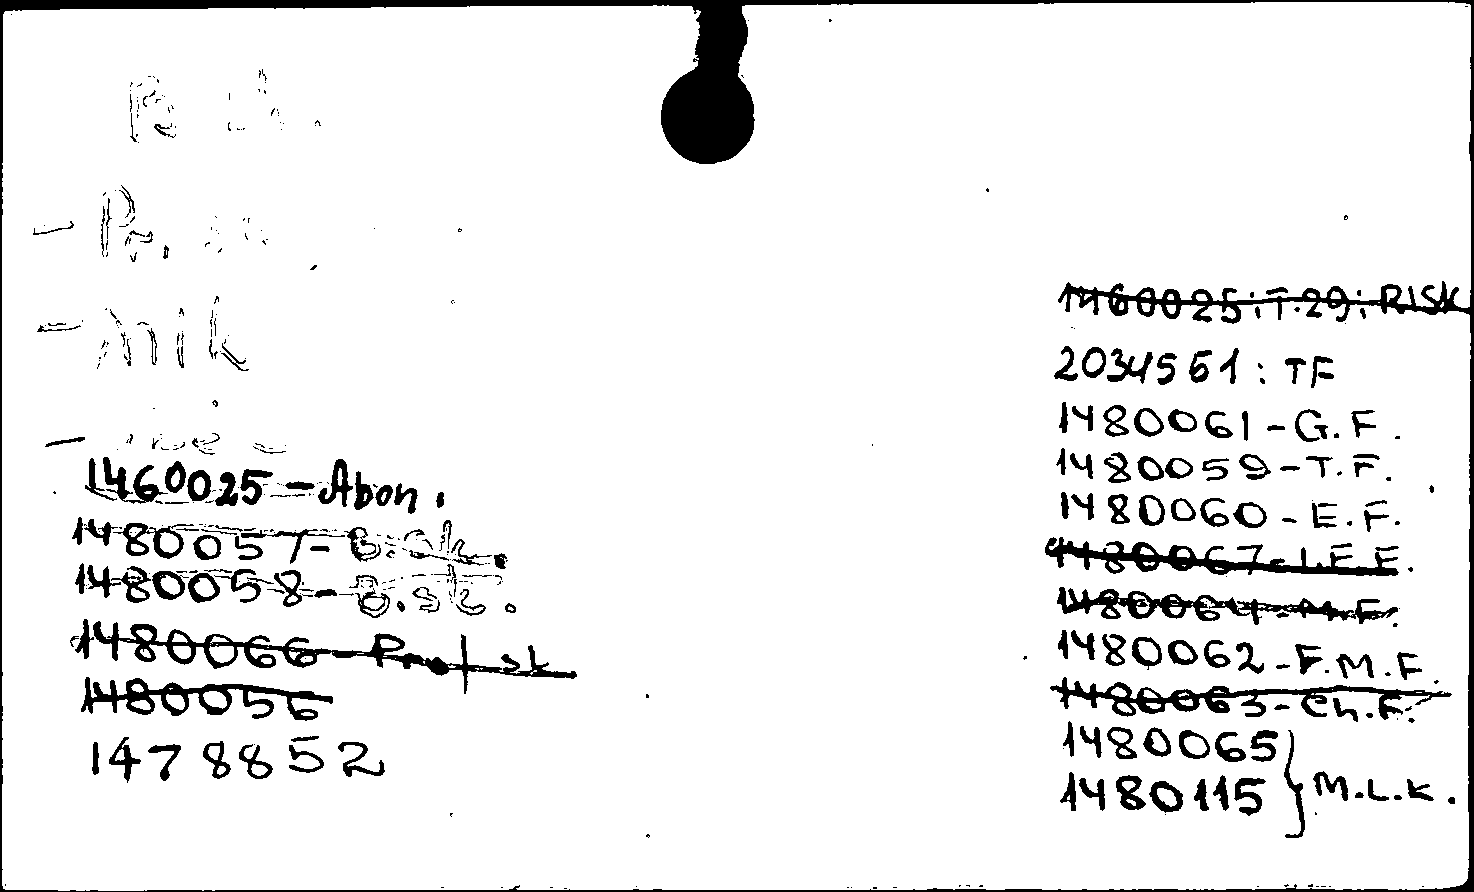 - Pr.
- mik
-
1460025 - Abon.
1480057 - B.sk.
1480058 - B.sk.
1480066 - Prof sk
1480056
1478852
1460025: T.29: RISK
2034561: TF
1480061 - G.F.
1480059 - T.F.
1480060 - E.F.
1480067 - I.F.F.
1480064 - M.F.
1480062 - F.M.F.
1480063 - Ch.F.
1480065
1480115 } M.L.K.